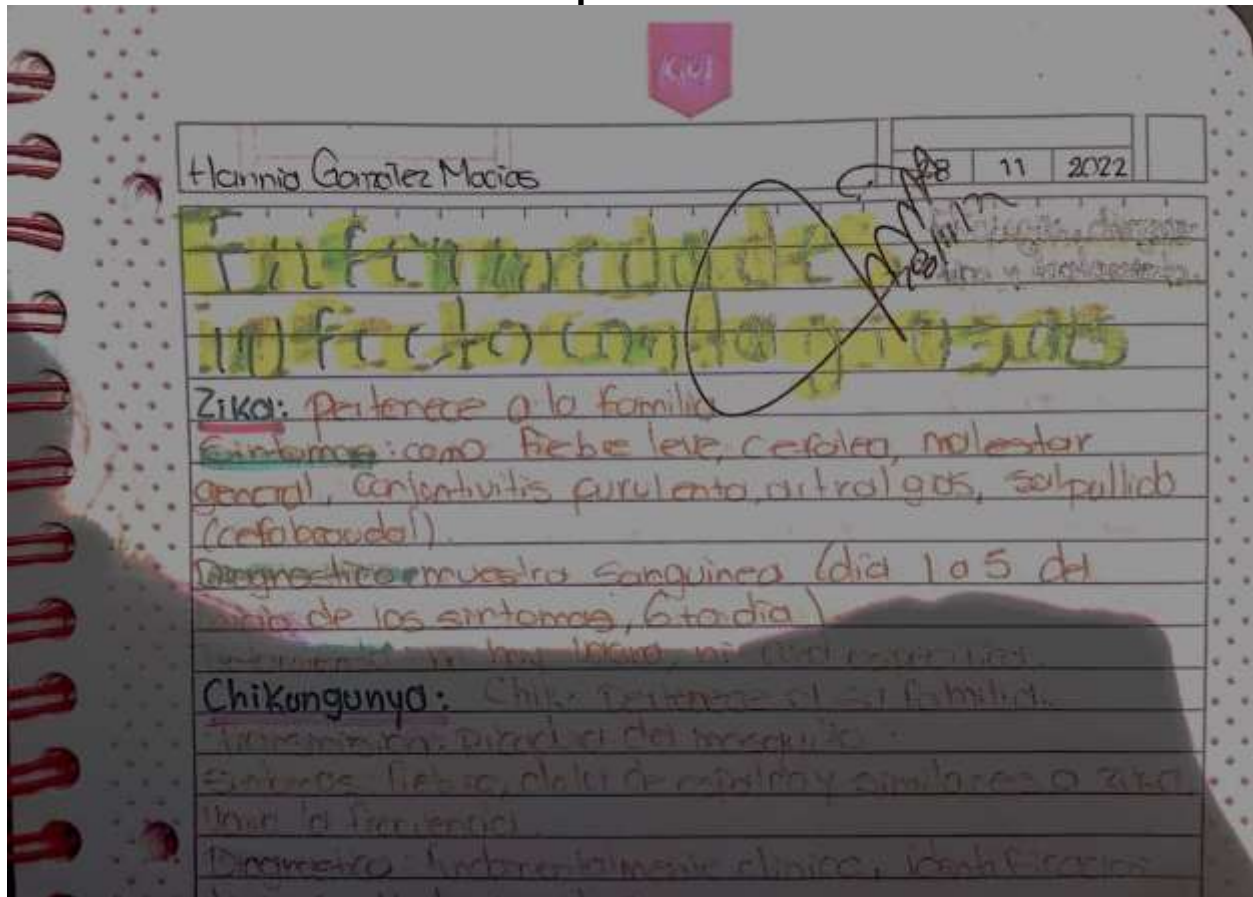 Hannia González Macias
28 11 2022
Enfermedades
infectocontagiosas
Zika: Pertenece a la familia
Sintomas: como fiebre leve, cefalea, malestar
general, conjontivitis purulenta, artralgias, salpullido
(cefabcaudal).
Diagnostico muestra sanguinea (dia 1 a 5 del
inicio de los sintomas, 6to dia)
no hay ni
Chikungunya: Chik. Pertenece a familia.
Transmision: Picadura del mosquito.
Sintomas: fiebre, dolor de espalda y similares a zika
Diagnostico: fundamentalmente clinico, identificacion